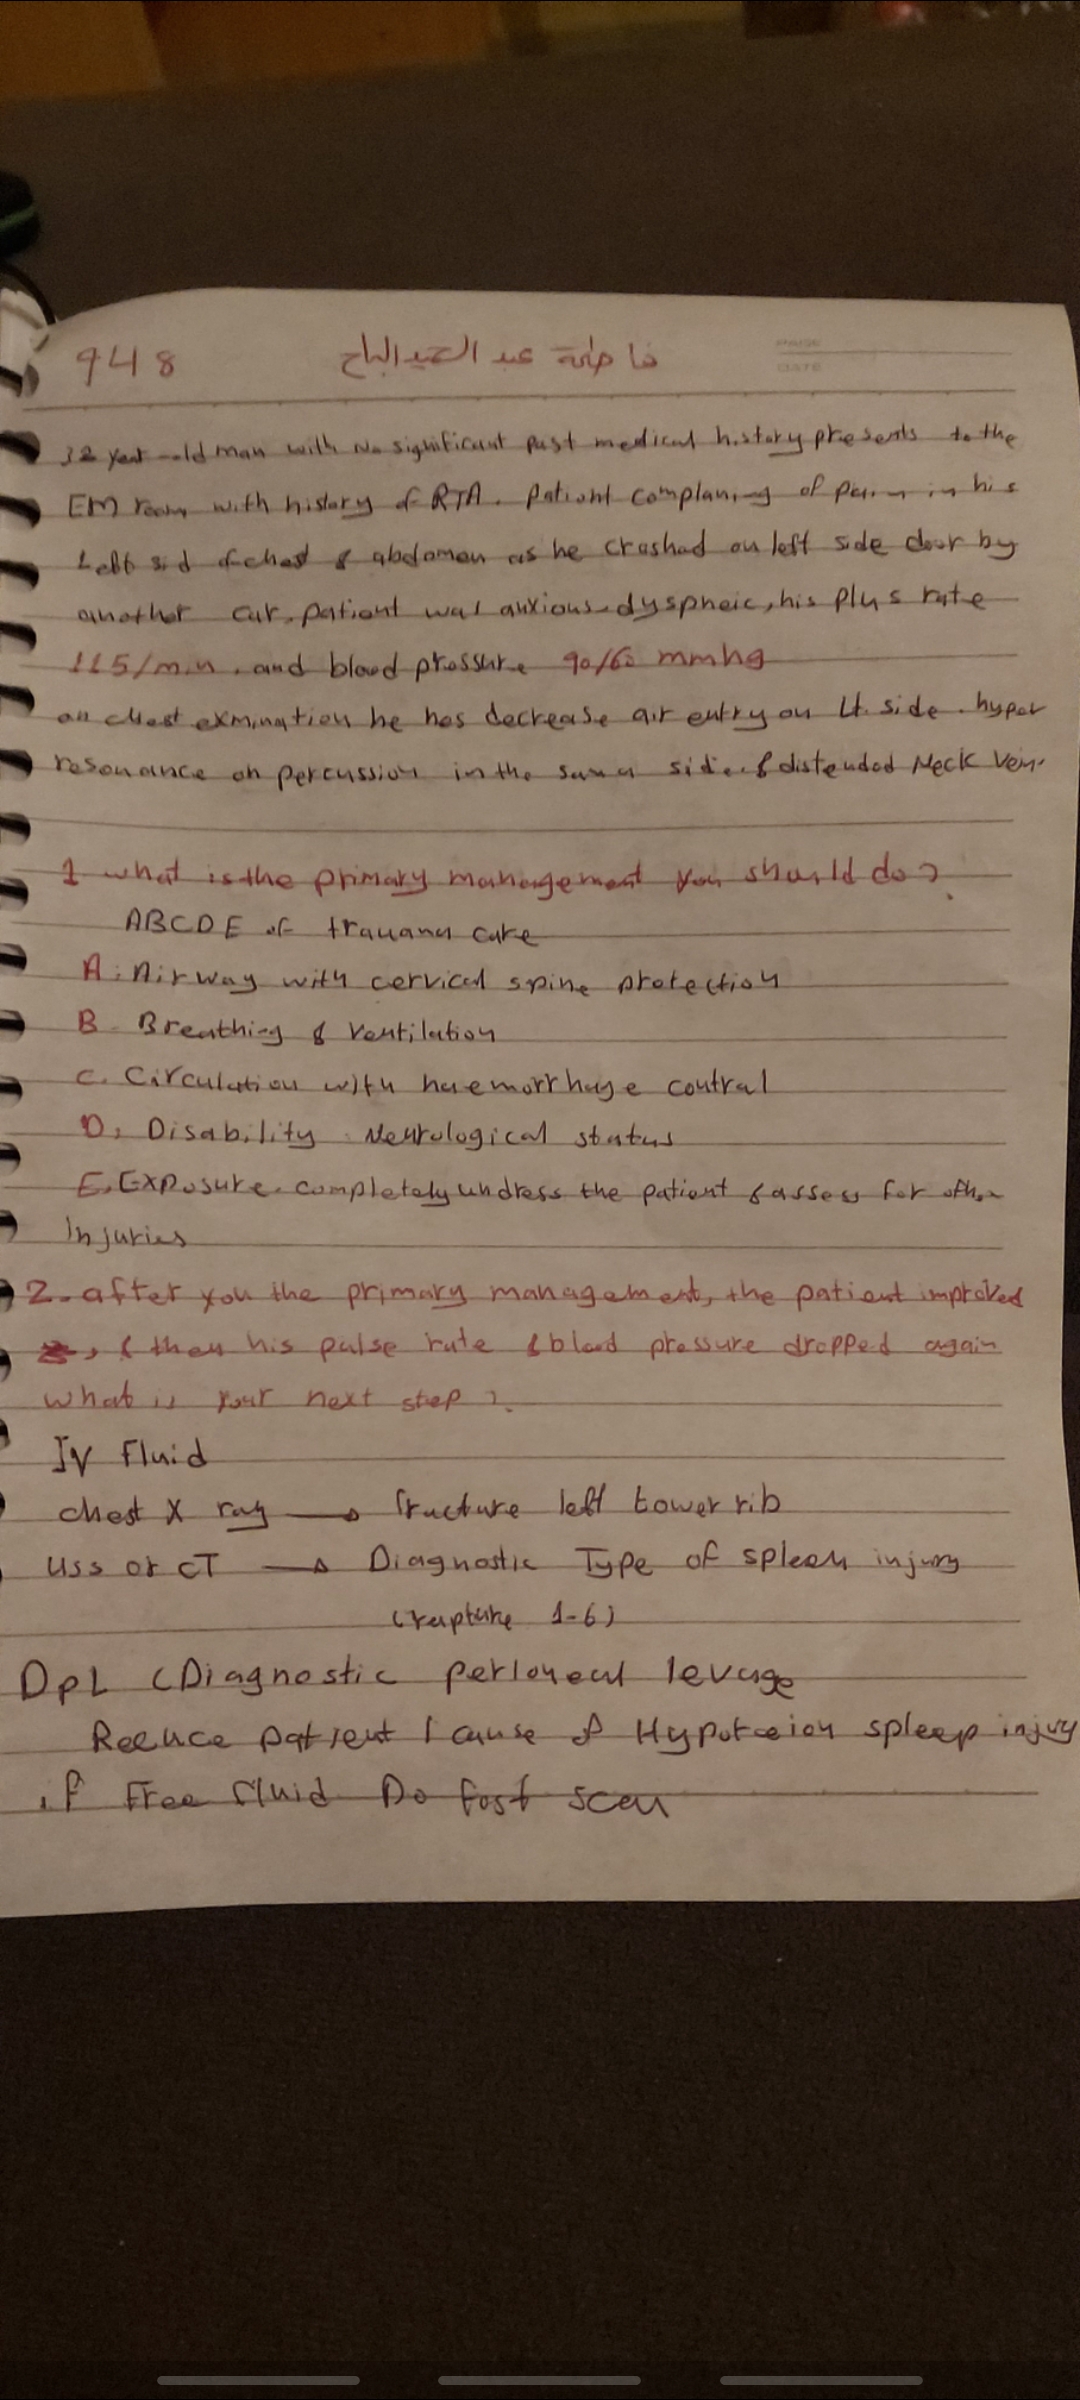 948 فاطمة عبد الحميد الباح
PAGE
DATE
32 year old man with no significant past medical history presents to the
EM room with history of RTA. Patient complaning of pain in his
Left sid of chest & abdomen as he crashed on left side door by
another car, patient was anxious dyspneic, his plus rate
115/min. and blood pressure 90/60 mmhg
on chest exmination he hes decrease air entry on Lt. side. hyper
resonance on percussion in the same side & distended Neck vein.
1 what is the primary management you should do?
ABCDE of trauma care
A: Airway with cervical spine protection
B Breathing & Ventilation
C. Circulation with haemorrhage control
D, Disability Neurological status
E, Exposure. completely undress the patient & assess for other
Injuries
2. after you the primary management, the patient improved
, & then his pulse rate & blood pressure dropped again
what is your next step?
IV fluid
chest X ray → fructure left lower rib
Uss or CT → Diagnostic Type of spleen injury
(rupture 1-6)
DpL (Diagnostic peritoneal levage
patient cause of spleep injury
if Free fluid Do fast scan